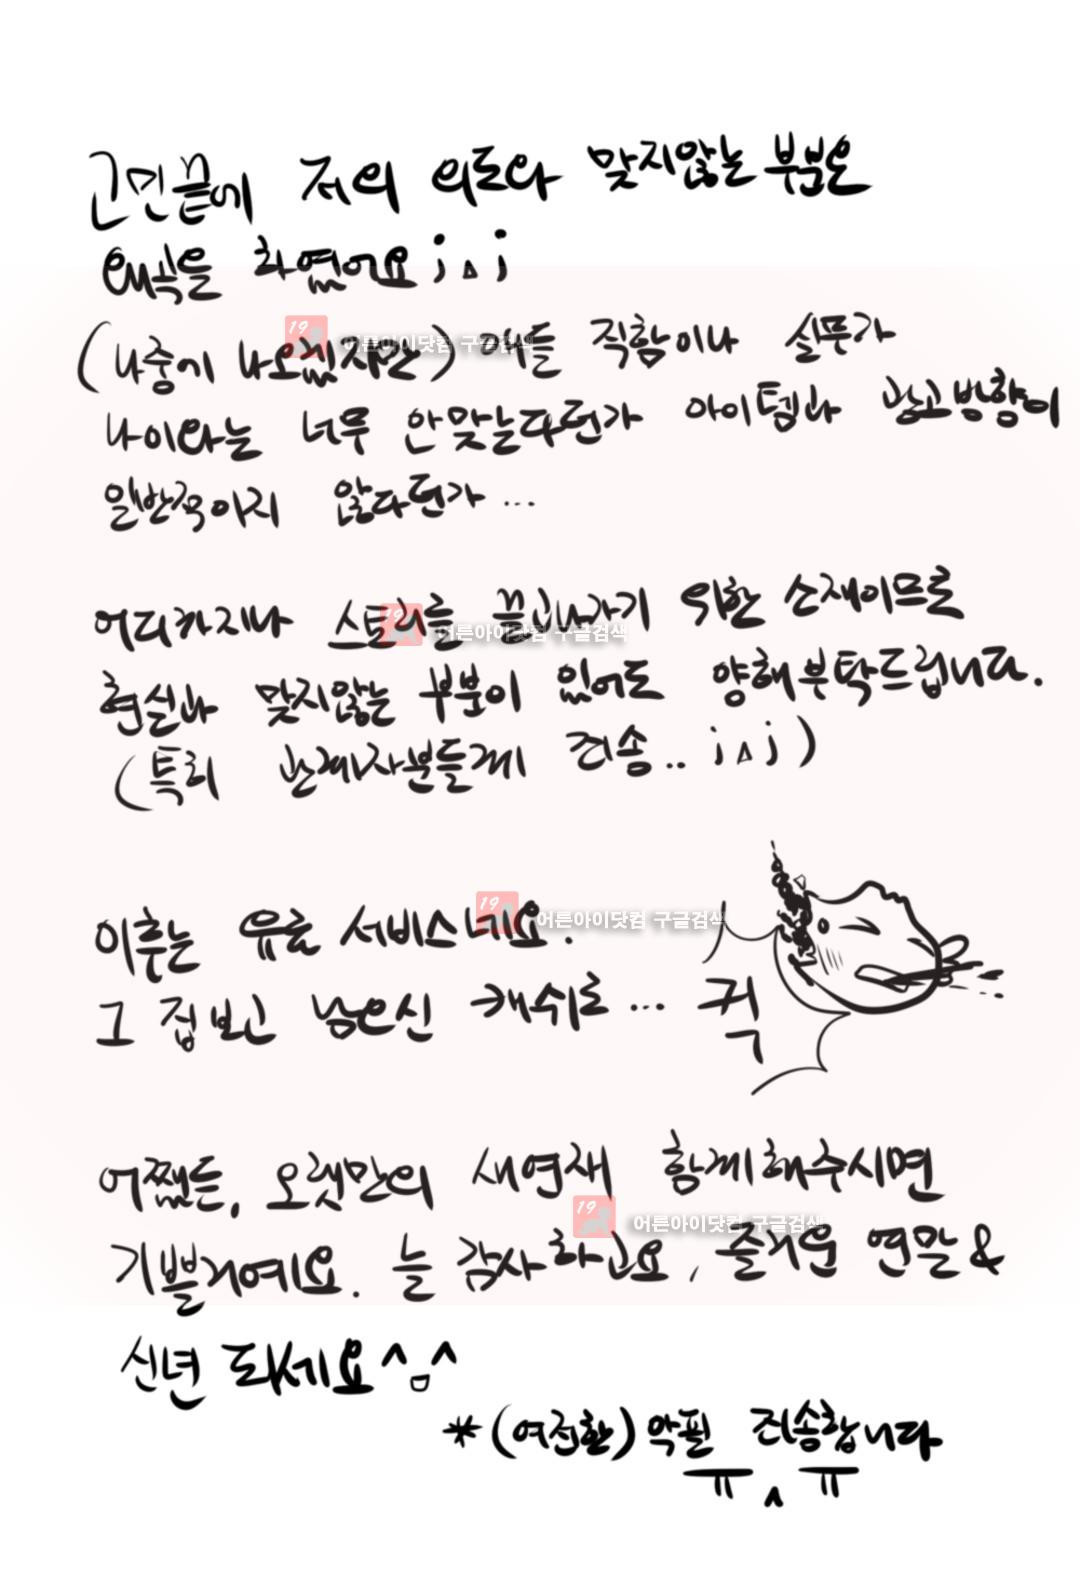 고민끝에 저의 의도와 맞지않는 부분은
왜곡을 하였어요 ;ㅅ;
(나중에 나오겠지만) 예를 직함이나 실무가
나이와는 너무 안맞는다던가 아이템과 광고방향이
일반적이지 않다던가...
어디까지나 스토리를 끌고나가기 위한 소재이므로
현실과 맞지않는 부분이 있어도 양해부탁드립니다.
(특히 관계자분들께 죄송.. ;ㅅ;)
이후는 유료 서비스네요.
그 집보고 남으신 캐쉬로... 퀵
어쨌든, 오랫만의 새연재 함께해주시면
기쁠거예요. 늘 감사하고요, 즐거운 연말&
신년 되세요^ㅁ^
*(여전한) 악필 죄송합니다
ㅠㅅㅠ
19 어른아이닷컴 구글검색
19 어른아이닷컴 구글검색
19 어른아이닷컴 구글검색
19 어른아이닷컴 구글검색